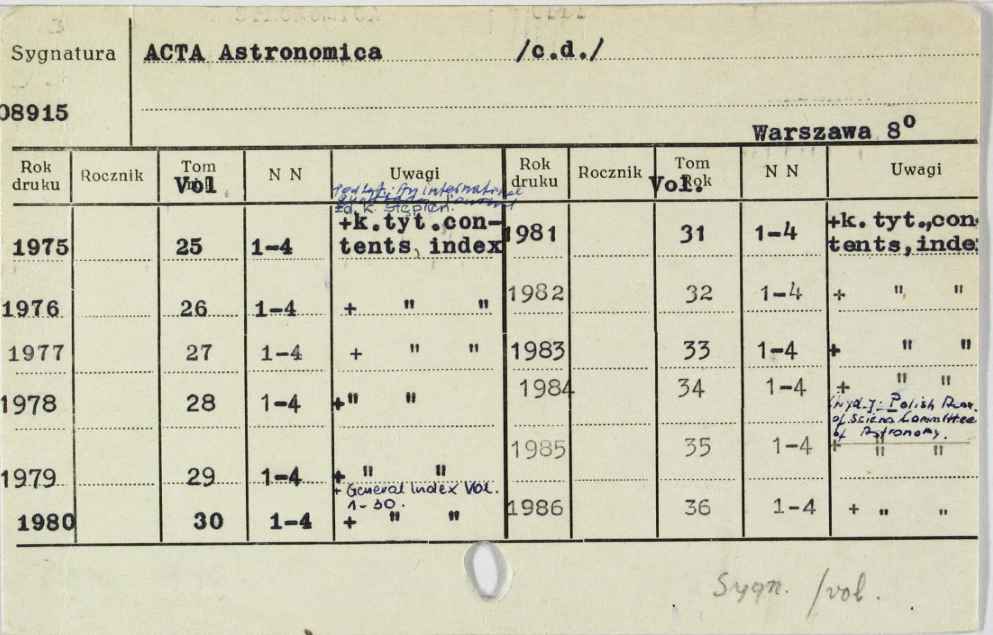 Sygnatura ACTA Astronomica /c.d./
08915
Warszawa 8°
Rok druku Rocznik Tom Vol N N Uwagi Rok druku Rocznik Tom Rok Vol. N N Uwagi
An international
Ed. K. Stępień.
1975 25 1-4 +k.tyt.con-tents, index 1981 31 1-4 +k.tyt.,con-tents,inde
1976 26 1-4 + " " 1982 32 1-4 + " "
1977 27 1-4 + " " 1983 33 1-4 + " "
1978 28 1-4 +" " 1984 34 1-4 + " "
Polish
of Sciens Committee
of Astronomy.
1979 29 1-4 + " " 1985 35 1-4 + " "
+ General index Vol.
1-30.
1980 30 1-4 + " " 1986 36 1-4 + " "
Sygn. /vol.